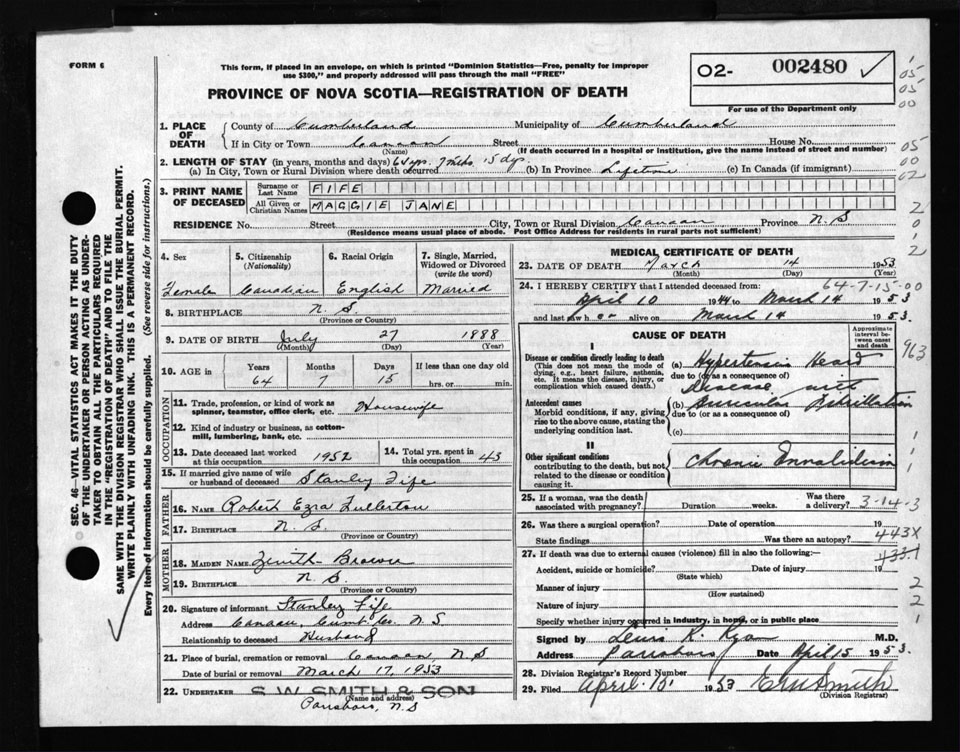 FORM 6
This form, if placed in an envelope, on which is printed "Dominion Statistics—Free, penalty for improper
use $300," and properly addressed will pass through the mail "FREE"
02- 002480 ✓
For use of the Department only
PROVINCE OF NOVA SCOTIA—REGISTRATION OF DEATH
1. PLACE OF DEATH
County of Cumberland Municipality of Cumberland
If in City or Town Canaan Street House No.
(Name) (If death occurred in a hospital or institution, give the name instead of street and number)
2. LENGTH OF STAY (in years, months and days) 64 yrs. 7 mths. 15 dys.
(a) In City, Town or Rural Division where death occurred (b) In Province Lifetime (c) In Canada (if immigrant)
3. PRINT NAME OF DECEASED
Surname or Last Name FIFE
All Given or Christian Names MAGGIE JANE
RESIDENCE No. Street City, Town or Rural Division Canaan Province N.S
(Residence means usual place of abode. Post Office Address for residents in rural parts not sufficient)
4. Sex
Female
5. Citizenship (Nationality)
Canadian
6. Racial Origin
English
7. Single, Married, Widowed or Divorced (write the word)
Married
8. BIRTHPLACE N. S.
(Province or Country)
9. DATE OF BIRTH July 27 1888
(Month) (Day) (Year)
10. AGE IN Years Months Days If less than one day old
64 7 15 hrs. or min.
OCCUPATION
11. Trade, profession, or kind of work as spinner, teamster, office clerk, etc. Housewife
12. Kind of industry or business, as cotton-mill, lumbering, bank, etc.
13. Date deceased last worked at this occupation 1952
14. Total yrs. spent in this occupation 43
15. If married give name of wife or husband of deceased Stanley Fife
FATHER
16. NAME Robert Ezra Fullerton
17. BIRTHPLACE N. S.
(Province or Country)
MOTHER
18. MAIDEN NAME Zenith Brown
19. BIRTHPLACE N. S
(Province or Country)
20. Signature of informant Stanley Fife
Address Canaan, Cumb. Co. N. S
Relationship to deceased Husband
21. Place of burial, cremation or removal Canaan, N. S
Date of burial or removal March 17, 1953
22. UNDERTAKER S. W. SMITH & SON
(Name and address)
Parrsboro, N.S
MEDICAL CERTIFICATE OF DEATH
23. DATE OF DEATH March 14 1953
(Month) (Day) (Year)
24. I HEREBY CERTIFY that I attended deceased from: 64-7-15-00
April 10 1944 to March 14 1953
and last saw her alive on March 14 1953.
CAUSE OF DEATH
Approximate interval between onset and death
I
Disease or condition directly leading to death
(This does not mean the mode of dying, e.g., heart failure, asthenia, etc. It means the disease, injury, or complication which caused death.)
(a) Hypertensive Heart
due to (or as a consequence of)
Disease with
Antecedent causes
Morbid conditions, if any, giving rise to the above cause, stating the underlying condition last.
(b) Auricular Fibrillation
due to (or as a consequence of)
(c)
II
Other significant conditions
contributing to the death, but not related to the disease or condition causing it.
Chronic
25. If a woman, was the death associated with pregnancy? Duration weeks. Was there a delivery? 3-14-3
26. Was there a surgical operation? Date of operation 19
State findings Was there an autopsy? 443X
27. If death was due to external causes (violence) fill in also the following:—
Accident, suicide or homicide? Date of injury 19
(State which)
Manner of injury
(How sustained)
Nature of injury
Specify whether injury occurred in industry, in home, or in public place
Signed by Lewis R. Ryan M.D.
Address Parrsboro Date April 15 1953.
28. Division Registrar's Record Number
29. Filed April 15, 1953 Smith
(Division Registrar)
SEC. 46—VITAL STATISTICS ACT MAKES IT THE DUTY
OF THE UNDERTAKER OR PERSON ACTING AS UNDER-
TAKER TO OBTAIN ALL THE PARTICULARS REQUIRED
IN THE "REGISTRATION OF DEATH" AND TO FILE THE
SAME WITH THE DIVISION REGISTRAR WHO SHALL ISSUE THE BURIAL PERMIT.
WRITE PLAINLY WITH UNFADING INK. THIS IS A PERMANENT RECORD.
Every item of information should be carefully supplied. (See reverse side for instructions.)
05
05
00
05
00
02
2
0
1
2
963
1
1
1
2
2
1